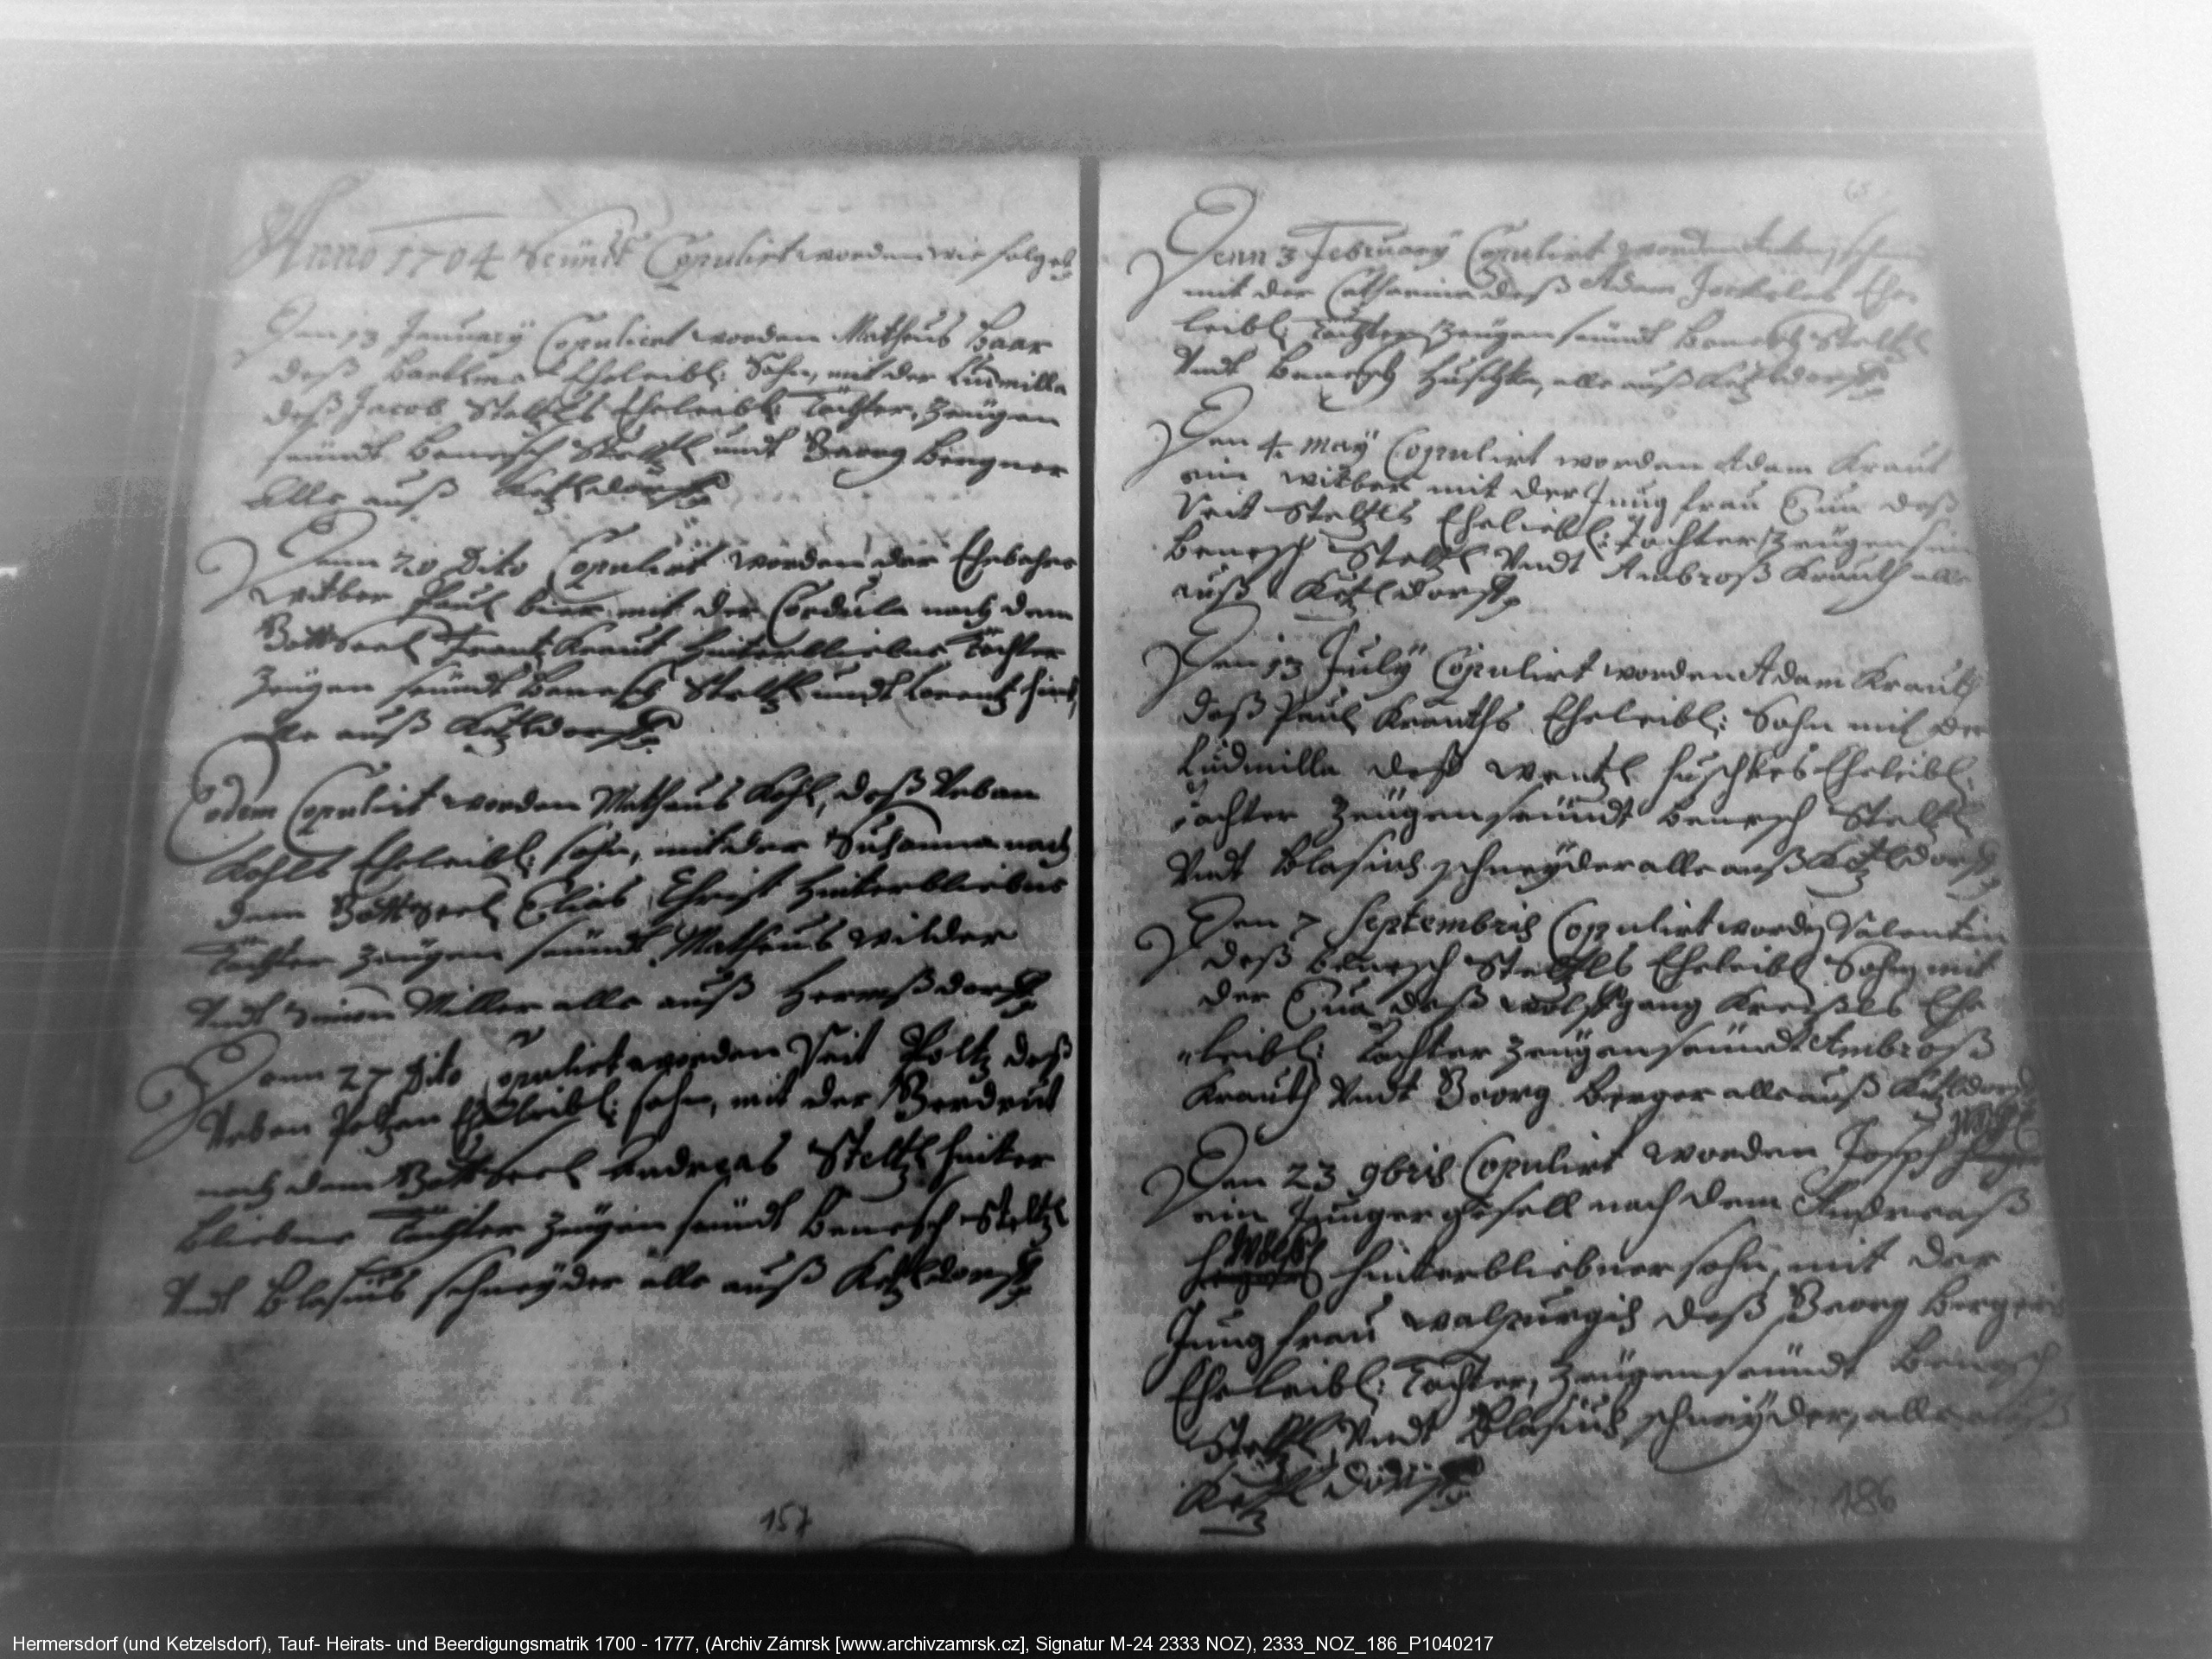 Anno 1704 Seündt Copulirt worden wie folget
Den 13 January Copulirt worden Matheus Haar
deß Bartlme Eheleibl: Sohn, mit der Ludmilla
deß Jacob Steltzls Eheleibl: Tochter, Zeügen
seündt Benesch Steltzl undt Georg Bergner
Alle auß Ketzldorff
Denn 20 Dito Copulirt worden der Ehrbahre
witber Paul Bier mit der Cordula nach dem
Gottseel Frantz Kraut Hinterbliebne Tochter
Zeügen seündt Benesch Steltzl undt Lorentz
alle auß Ketzldorff
Eodem Copulirt worden Mathaus Kohl, deß Urban
Kohls Eheleibl: sohn, mit der Susanna nach
dem Gottseel Elias Christ Hinterbliebne
Tochter Zeügen seündt Matheus Wilder
Undt Simon Miller alle auß Hermßdorff
Denn 27 Dito Copulirt worden Veit Poltz deß
Urban Poltzen Eheleibl: sohn, mit der Gerdrut
nach dem Gottseel Andreas Steltzl hinter
bliebne Tochter Zeügen seündt Benesch Steltzl
Undt Blasius schneyder alle auß Ketzldorff
157
Denn 3 February Copulirt worden
mit der Catharina deß Adam Jockeles Ehe
leibl: Tochter Zeügen seündt Benesch Steltzl
Undt Benesch Huschka, alle auß Ketzldorff
Den 4 May Copulirt worden Adam Kraut
ein witber mit der Jung frau Eua deß
Veit Steltzls Eheleibl: Tochter Zeügen
Benesch Steltzl Undt Ambroß Krauth alle
auß Ketzldorff
Den 13 July Copulirt worden Adam Krauth
deß Paul Krauths Eheleibl: Sohn mit der
Ludmilla deß Wentzl huschkes Eheleibl:
Tochter Zeügen seündt Benesch Steltzl
Undt Blasius schneyder alle auß Ketzldorff
Den 7 Septembris Copulirt worden Valentin
deß Benesch Steltzls Eheleibl Sohn mit
der Eua deß wolffgang Kreißls Ehe
leibl: Tochter Zeügen seündt Ambroß
Krauth Undt Georg Berger alle auß Ketzldorff
Den 23 9bris Copulirt worden Joseph
ein Junger gesell nach dem Andreaß
hinterbliebner sohn, mit der
Jung frau walpurgis deß Georg Bergers
Eheleibl: Tochter, Zeügen seündt Benesch
Steltzl, Undt Blasius schneyder, alle auß
Ketzldorff
186
Hermersdorf (und Ketzelsdorf), Tauf- Heirats- und Beerdigungsmatrik 1700 - 1777, (Archiv Zámrsk [www.archivzamrsk.cz], Signatur M-24 2333 NOZ), 2333_NOZ_186_P1040217